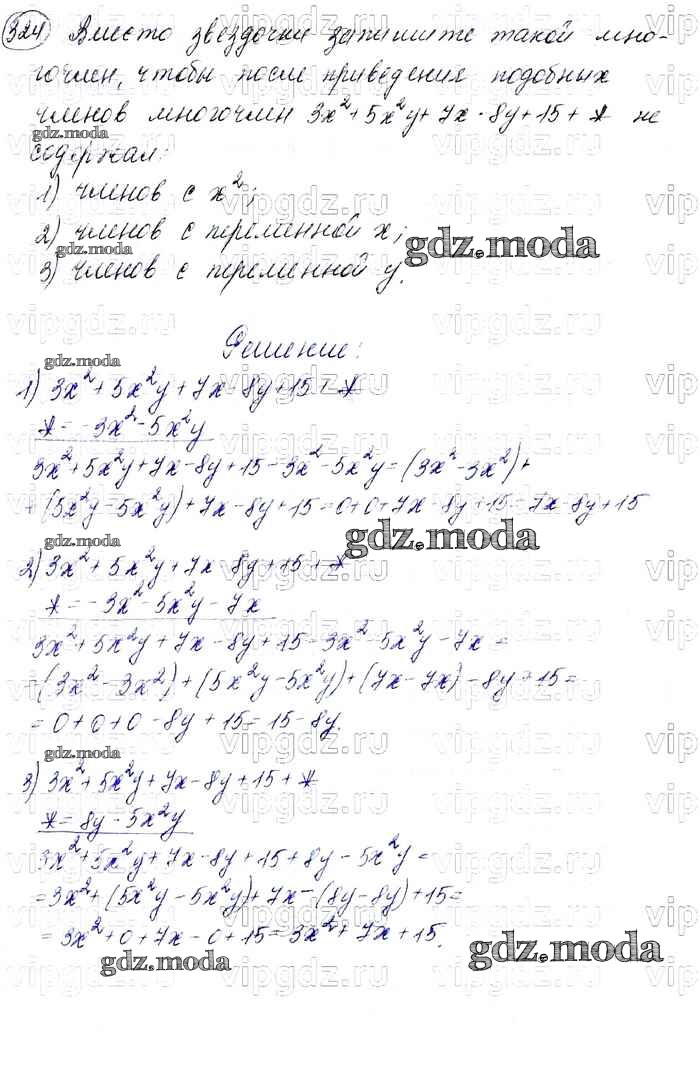 324 Вместо звездочки запишите такой мно-
гочлен, чтобы после приведения подобных
членов многочлен 3x²+5x²y+7x-8y+15+* не
gdz.moda
содержал:
1) членов с x²;
2) членов с переменной x;
gdz.moda
gdz.moda
3) членов с переменной y.
Решение:
gdz.moda
1) 3x²+5x²y+7x-8y+15+*
*=-3x²-5x²y
3x²+5x²y+7x-8y+15-3x²-5x²y=(3x²-3x²)+
+(5x²y-5x²y)+7x-8y+15=0+0+7x-8y+15=7x-8y+15
gdz.moda
gdz.moda
2) 3x²+5x²y+7x-8y+15+*
*=-3x²-5x²y-7x
3x²+5x²y+7x-8y+15-3x²-5x²y-7x=
=(3x²-3x²)+(5x²y-5x²y)+(7x-7x)-8y+15=
=0+0+0-8y+15=15-8y.
gdz.moda
3) 3x²+5x²y+7x-8y+15+*
*=8y-5x²y
3x²+5x²y+7x-8y+15+8y-5x²y=
=3x²+(5x²y-5x²y)+7x-(8y-8y)+15=
=3x²+0+7x-0+15=3x²+7x+15.
gdz.moda
gdz.moda
vipgdz.ru